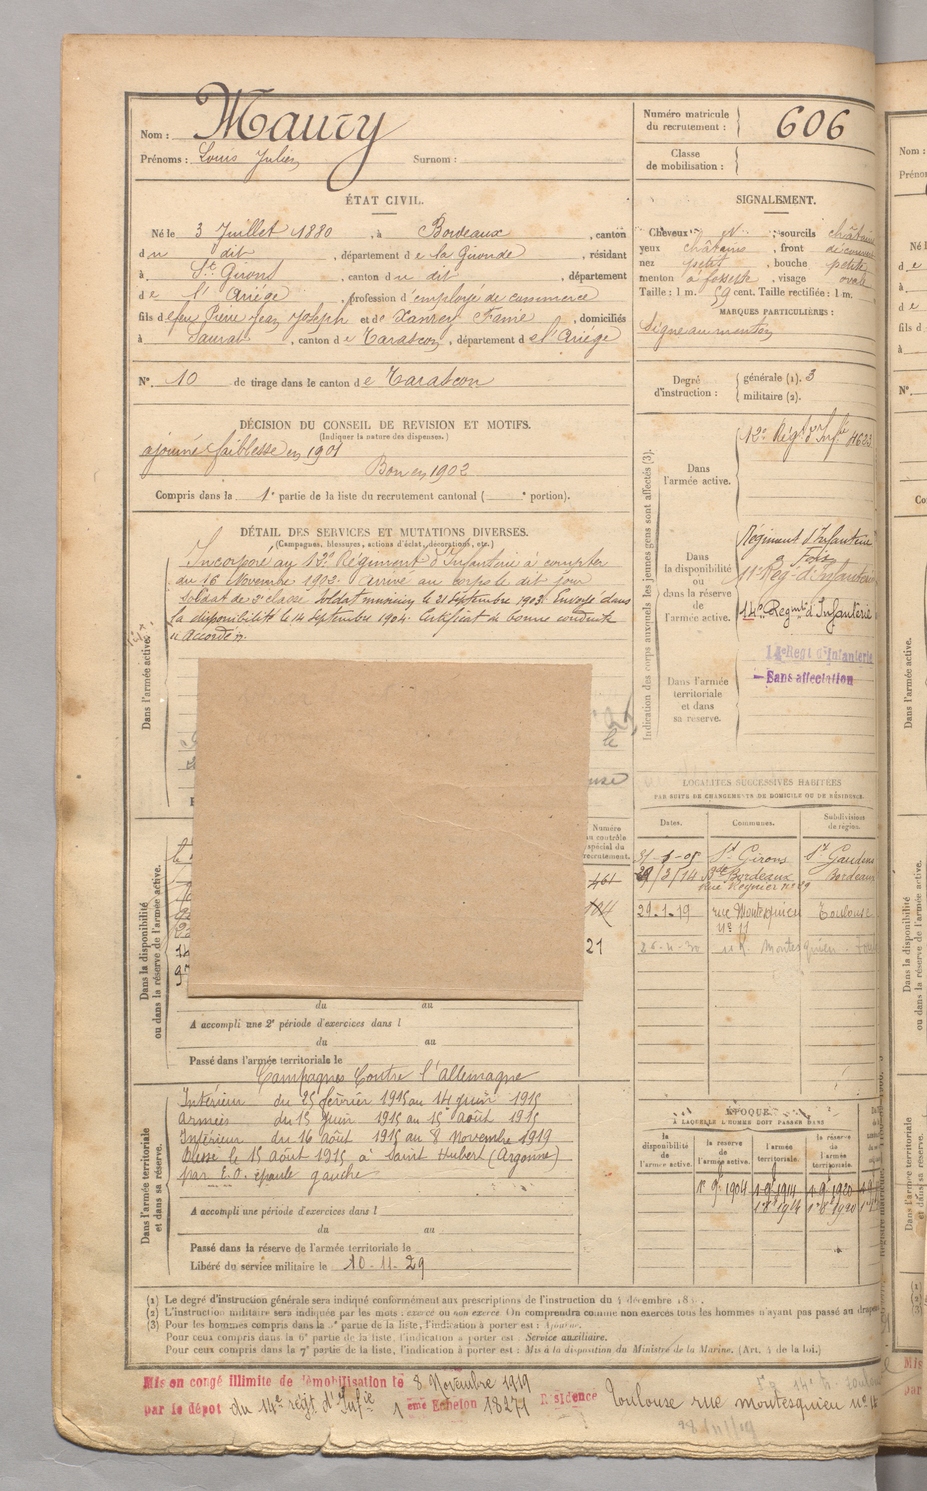 Nom : Maury
Prénoms : Louis Julien Surnom :
Numéro matricule du recrutement : 606
Classe de mobilisation :
ÉTAT CIVIL.
Né le 3 Juillet 1880, à Bordeaux, canton
du dit, département de la Gironde, résidant
à St. Girons, canton du dit, département
de l'Ariége, profession d'employé de commerce
fils de feu Pierre Jean Joseph et de Xanrey Fanie, domiciliés
à Saurat, canton de Tarascon, département de l'Ariége
SIGNALEMENT.
Cheveux N, sourcils châtains
yeux châtains, front découvert
nez petit, bouche petite
menton à fossette, visage ovale
Taille : 1 m. 59 cent. Taille rectifiée : 1 m.
MARQUES PARTICULIÈRES :
Signe au menton
N°. 10 de tirage dans le canton de Tarascon
Degré d'instruction : générale (1). 3
militaire (2).
DÉCISION DU CONSEIL DE REVISION ET MOTIFS.
(Indiquer la nature des dispenses.)
ajourné faiblesse en 1901
Bon en 1902
Compris dans la 1e partie de la liste du recrutement cantonal ( e portion).
DÉTAIL DES SERVICES ET MUTATIONS DIVERSES.
(Campagnes, blessures, actions d'éclat, décorations, etc.)
Dans l'armée active.
Incorporé au 12e Régiment d'Infanterie à compter
du 16 Novembre 1902. Arrivé au corps le dit jour
soldat de 2e classe. Soldat musicien le 21 Septembre 1903. Envoyé dans
la disponibilité le 14 Septembre 1904. Certificat de bonne conduite
accordé
Indication des corps auxquels les jeunes gens sont affectés (3).
Dans l'armée active. 12e Régt d'Infie 4623
Dans la disponibilité ou dans la réserve de l'armée active.
Régiment d'Infanterie
Foix
11e Rég. d'Infanterie
14e Regmt d'Infanterie
14e Régt d'Infanterie
Sans affectation
Dans l'armée territoriale et dans sa réserve.
LOCALITÉS SUCCESSIVES HABITÉES
PAR SUITE DE CHANGEMENTS DE DOMICILE OU DE RÉSIDENCE.
Dates. Communes. Subdivisions de région.
St Girons St Gaudens
29/3/14 Bordeaux Bordeaux
29-1-19 rue Montesquieu Toulouse
n° 11
Numéro au contrôle spécial du recrutement.
161
21
Dans la disponibilité ou dans la réserve de l'armée active.
du au
A accompli une 2e période d'exercices dans l
du au
Passé dans l'armée territoriale le
Campagnes Contre l'allemagne
Dans l'armée territoriale et dans sa réserve.
Intérieur du 25 février 1915 au 14 juin 1915
Armées du 15 juin 1915 au 15 août 1915
Intérieur du 16 août 1915 au 8 Novembre 1919
Blessé le 15 août 1915 à Saint Hubert (Argonne)
par E.O. épaule gauche
A accompli une période d'exercices dans l
du au
Passé dans la réserve de l'armée territoriale le
Libéré du service militaire le 10-11-29
ÉPOQUE
À LAQUELLE L'HOMME DOIT PASSER DANS
la disponibilité de l'armée active. la réserve de l'armée active. l'armée territoriale. la réserve de l'armée territoriale.
1r 9e 1904 1-9-1914 1-9-1920
(1) Le degré d'instruction générale sera indiqué conformément aux prescriptions de l'instruction du 4 décembre
(2) L'instruction militaire sera indiquée par les mots : exercé ou non exercé. On comprendra comme non exercés tous les hommes n'ayant pas passé au drapeau
(3) Pour les hommes compris dans la partie de la liste, l'indication à porter est : Ajourné.
Pour ceux compris dans la 6e partie de la liste, l'indication à porter est : Service auxiliaire.
Pour ceux compris dans la 7e partie de la liste, l'indication à porter est : Mis à la disposition du Ministre de la Marine. (Art. 4 de la loi.)
Mis en congé illimité de démobilisation le 8 Novembre 1919
par le dépôt du 14e régt d'Infie 1 ème Echelon 18271 Résidence Toulouse rue montesquieu n° 11